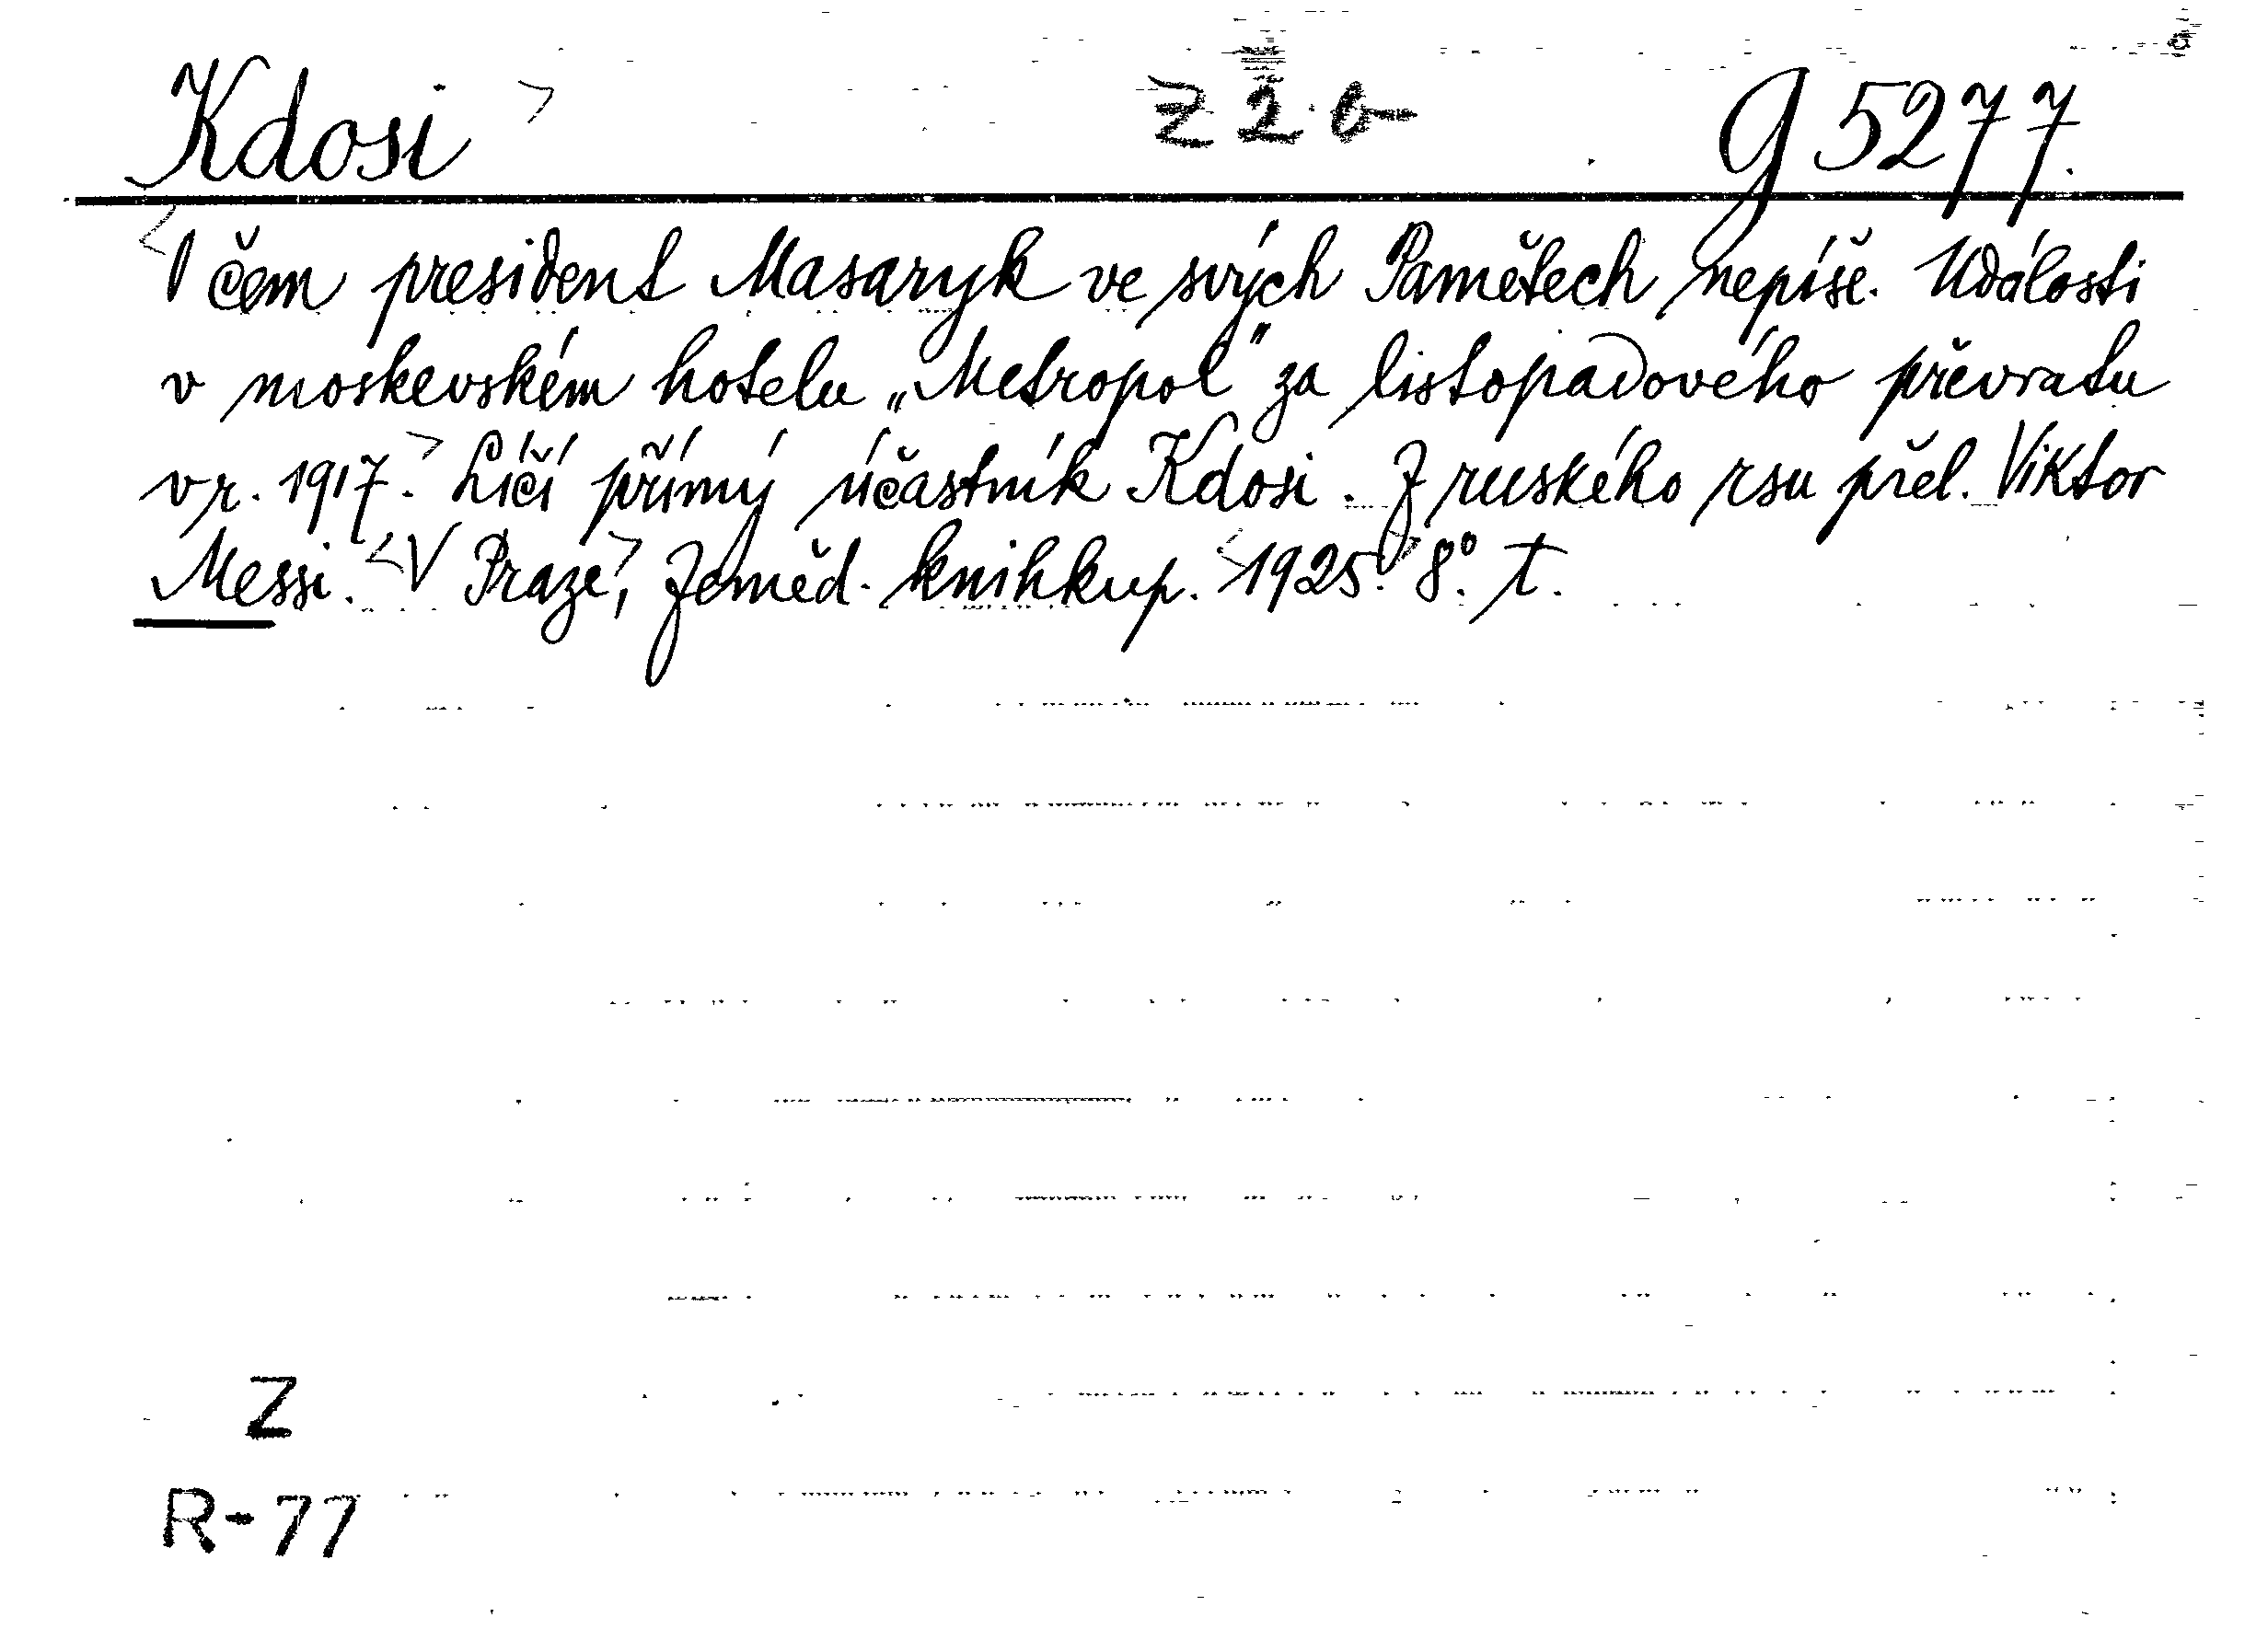 Kdosi > G 5277.
<O čem president Masaryk ve svých Pamětech nepíše. Události
v moskevském hotelu „Metropol" za listopadového převratu
v r. 1917.> Líčí přímý účastník Kdosi. Z ruského rsu přel. Viktor
Messi. <V Praze>, Zeměd. knihkup. <1925.> 8°. T.
Z
R-77